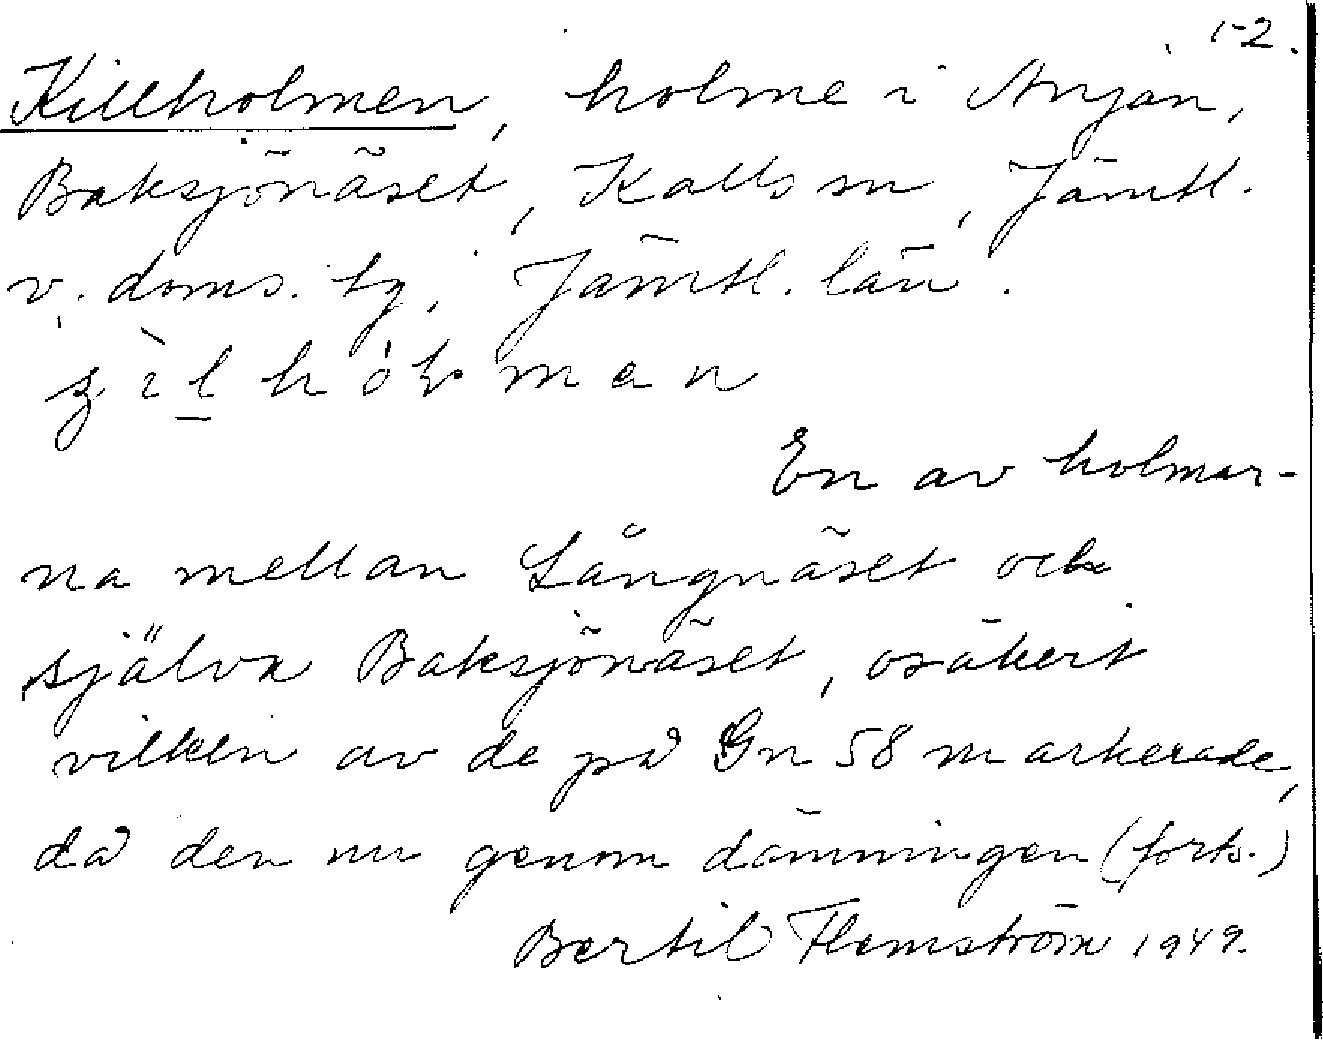 1-2.
Killholmen, holme i Anjan,
Baksjönäset, Kalls sn, Jämtl.
v. doms. tg, Jämtl. län.
En av holmar-
na mellan Långnäset och
själva Baksjönäset, osäkert
vilken av de på Gn 58 markerade,
då den nu genom dämningen (forts.)
Bertil Flemström 1949.